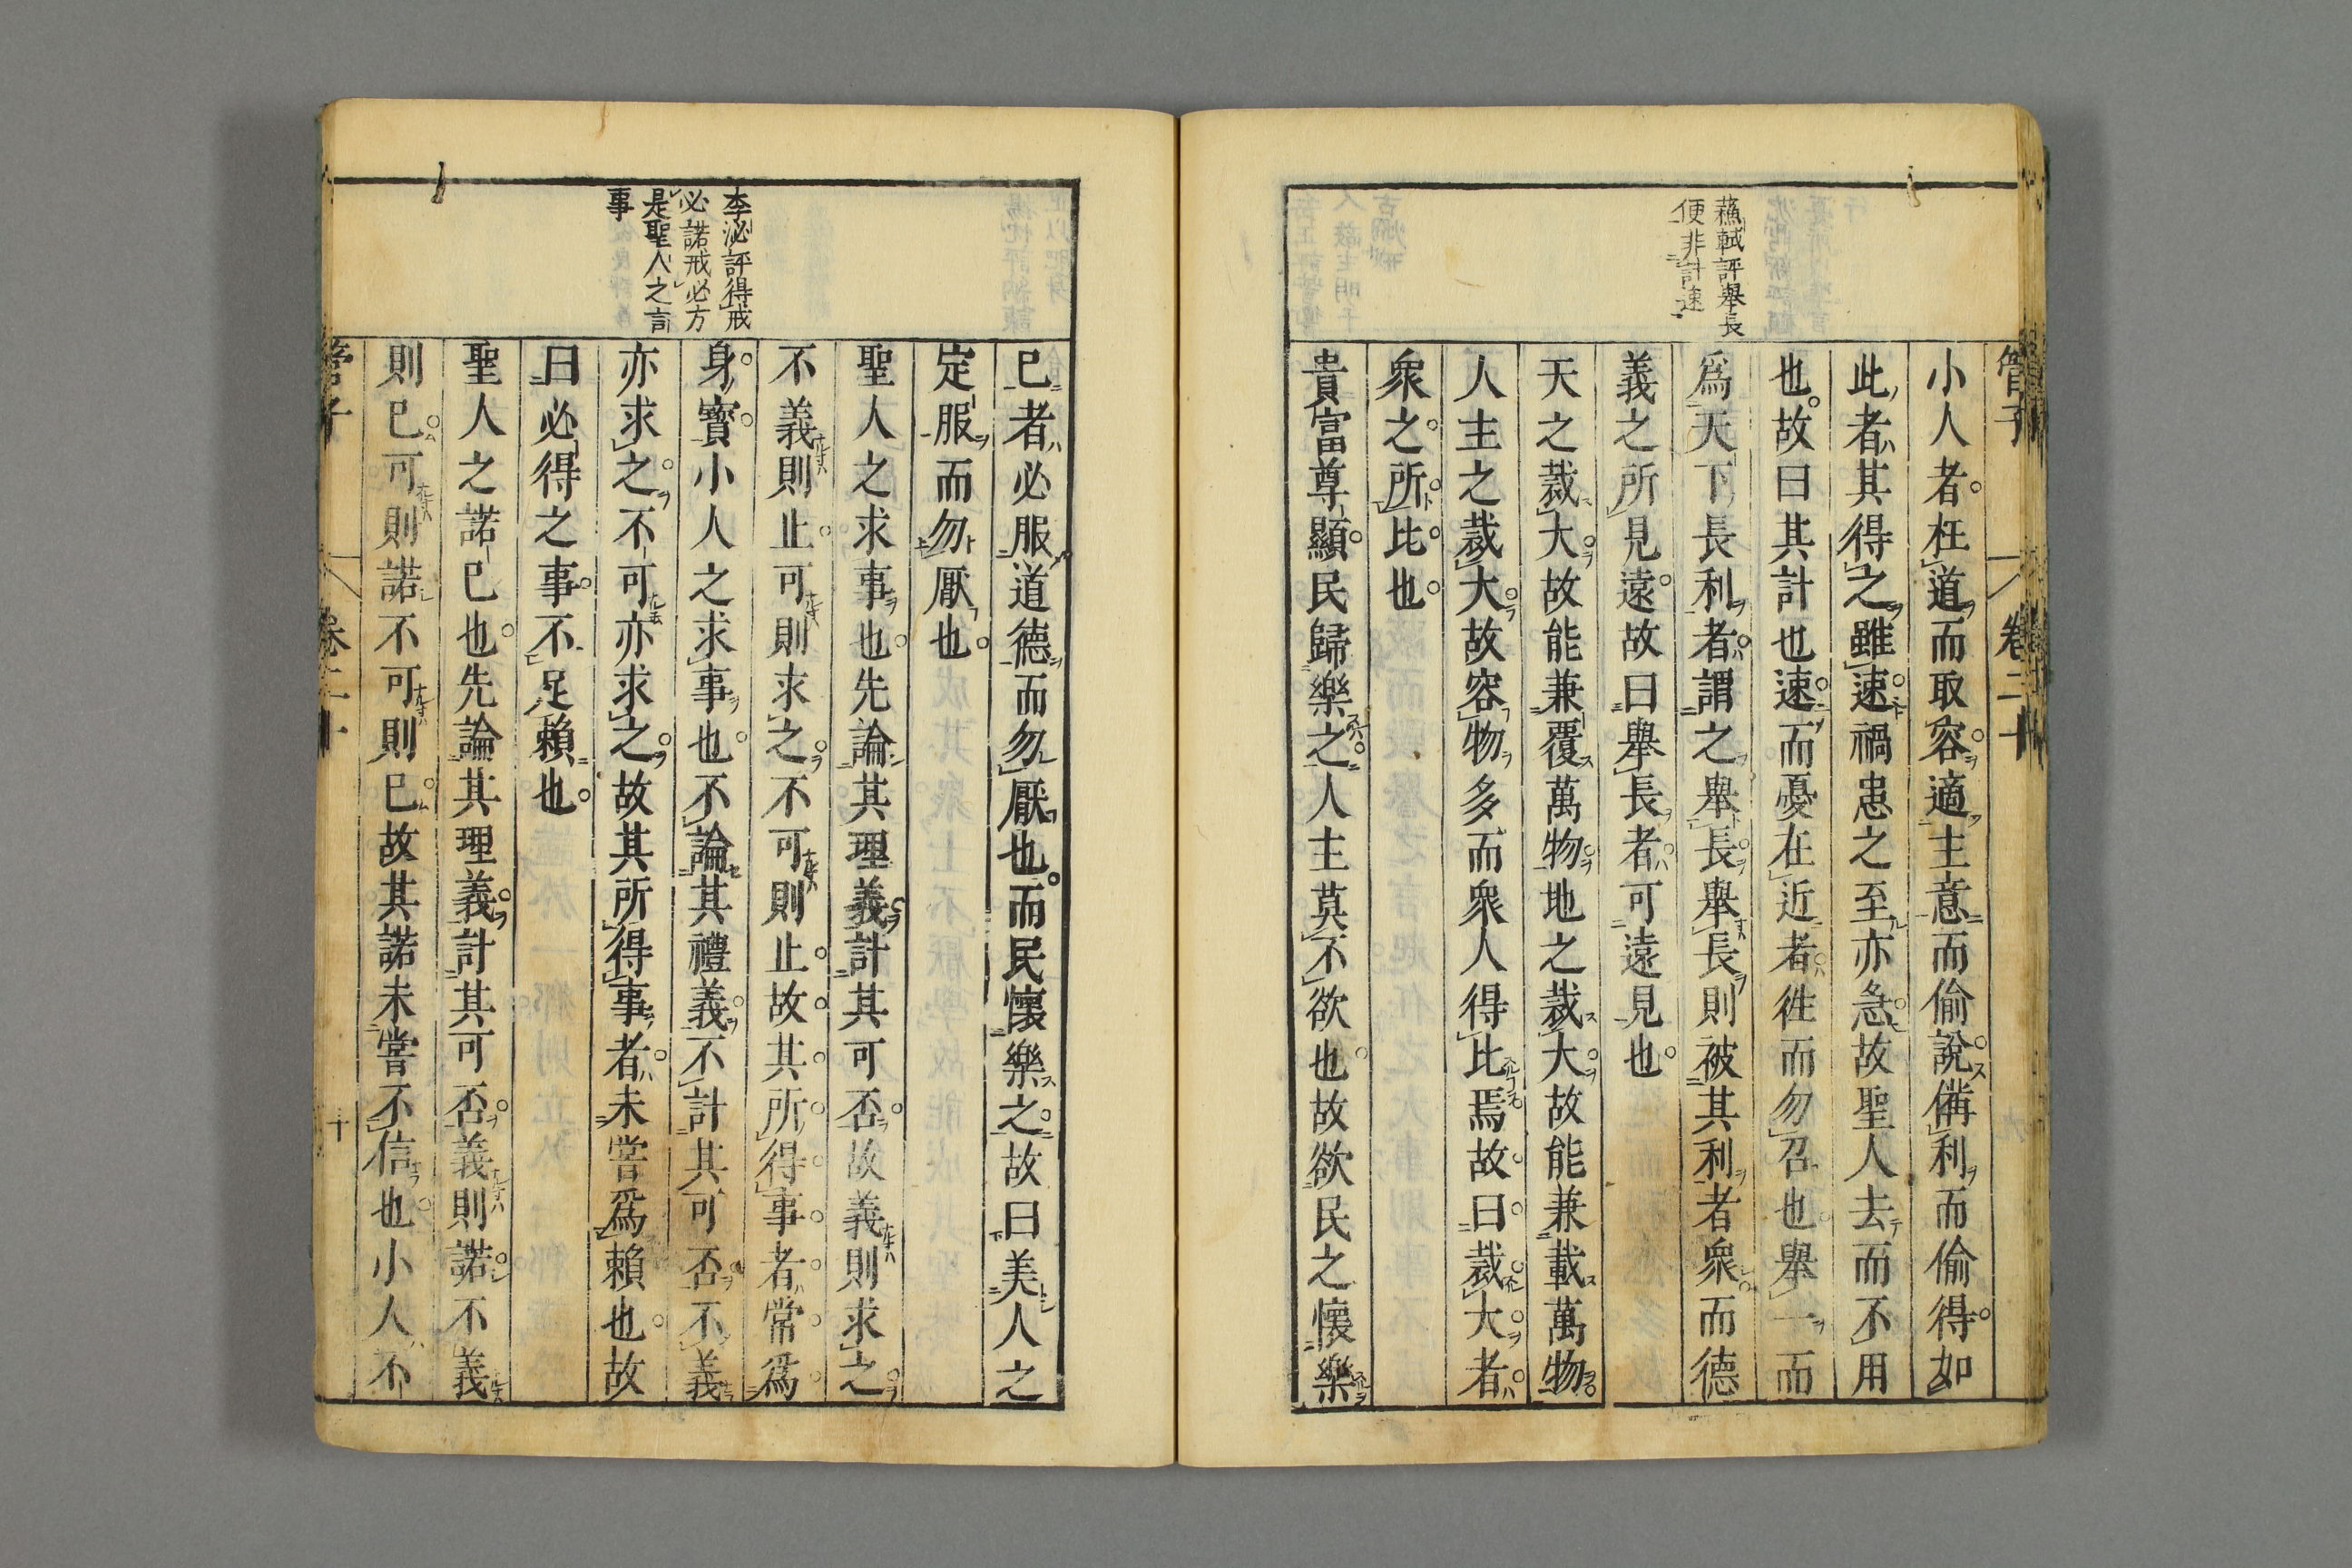 管子
卷二十
蘓軾評舉長
便非計速
小人者枉道而取容適主意而偷說備利而偷得如
此者其得之雖速禍患之至亦急故聖人去而不用
也故曰其計也速而憂在近者徃而勿召也舉一而
爲天下長利者謂之舉長舉長則被其利者衆而德
義之所見遠故曰舉長者可遠見也
天之裁大故能兼覆萬物地之裁大故能兼載萬物
人主之裁大故容物多而衆人得比焉故曰裁大者
衆之所比也
貴富尊顯民歸樂之人主莫不欲也故欲民之懷樂
李泌評得戒
必諾戒必方
是聖人之言
事
已者必服道德而勿厭也而民懷樂之故曰美人之
定服而勿厭也
聖人之求事也先論其理義計其可否故義則求之
不義則止可則求之不可則止故其所得事者常爲
身寳小人之求事也不論其禮義不計其可否不義
亦求之不可亦求之故其所得事者未嘗爲賴也故
曰必得之事不足賴也
聖人之諾已也先論其理義計其可否義則諾不義
則已可則諾不可則已故其諾未嘗不信也小人不
管子
卷二十
十